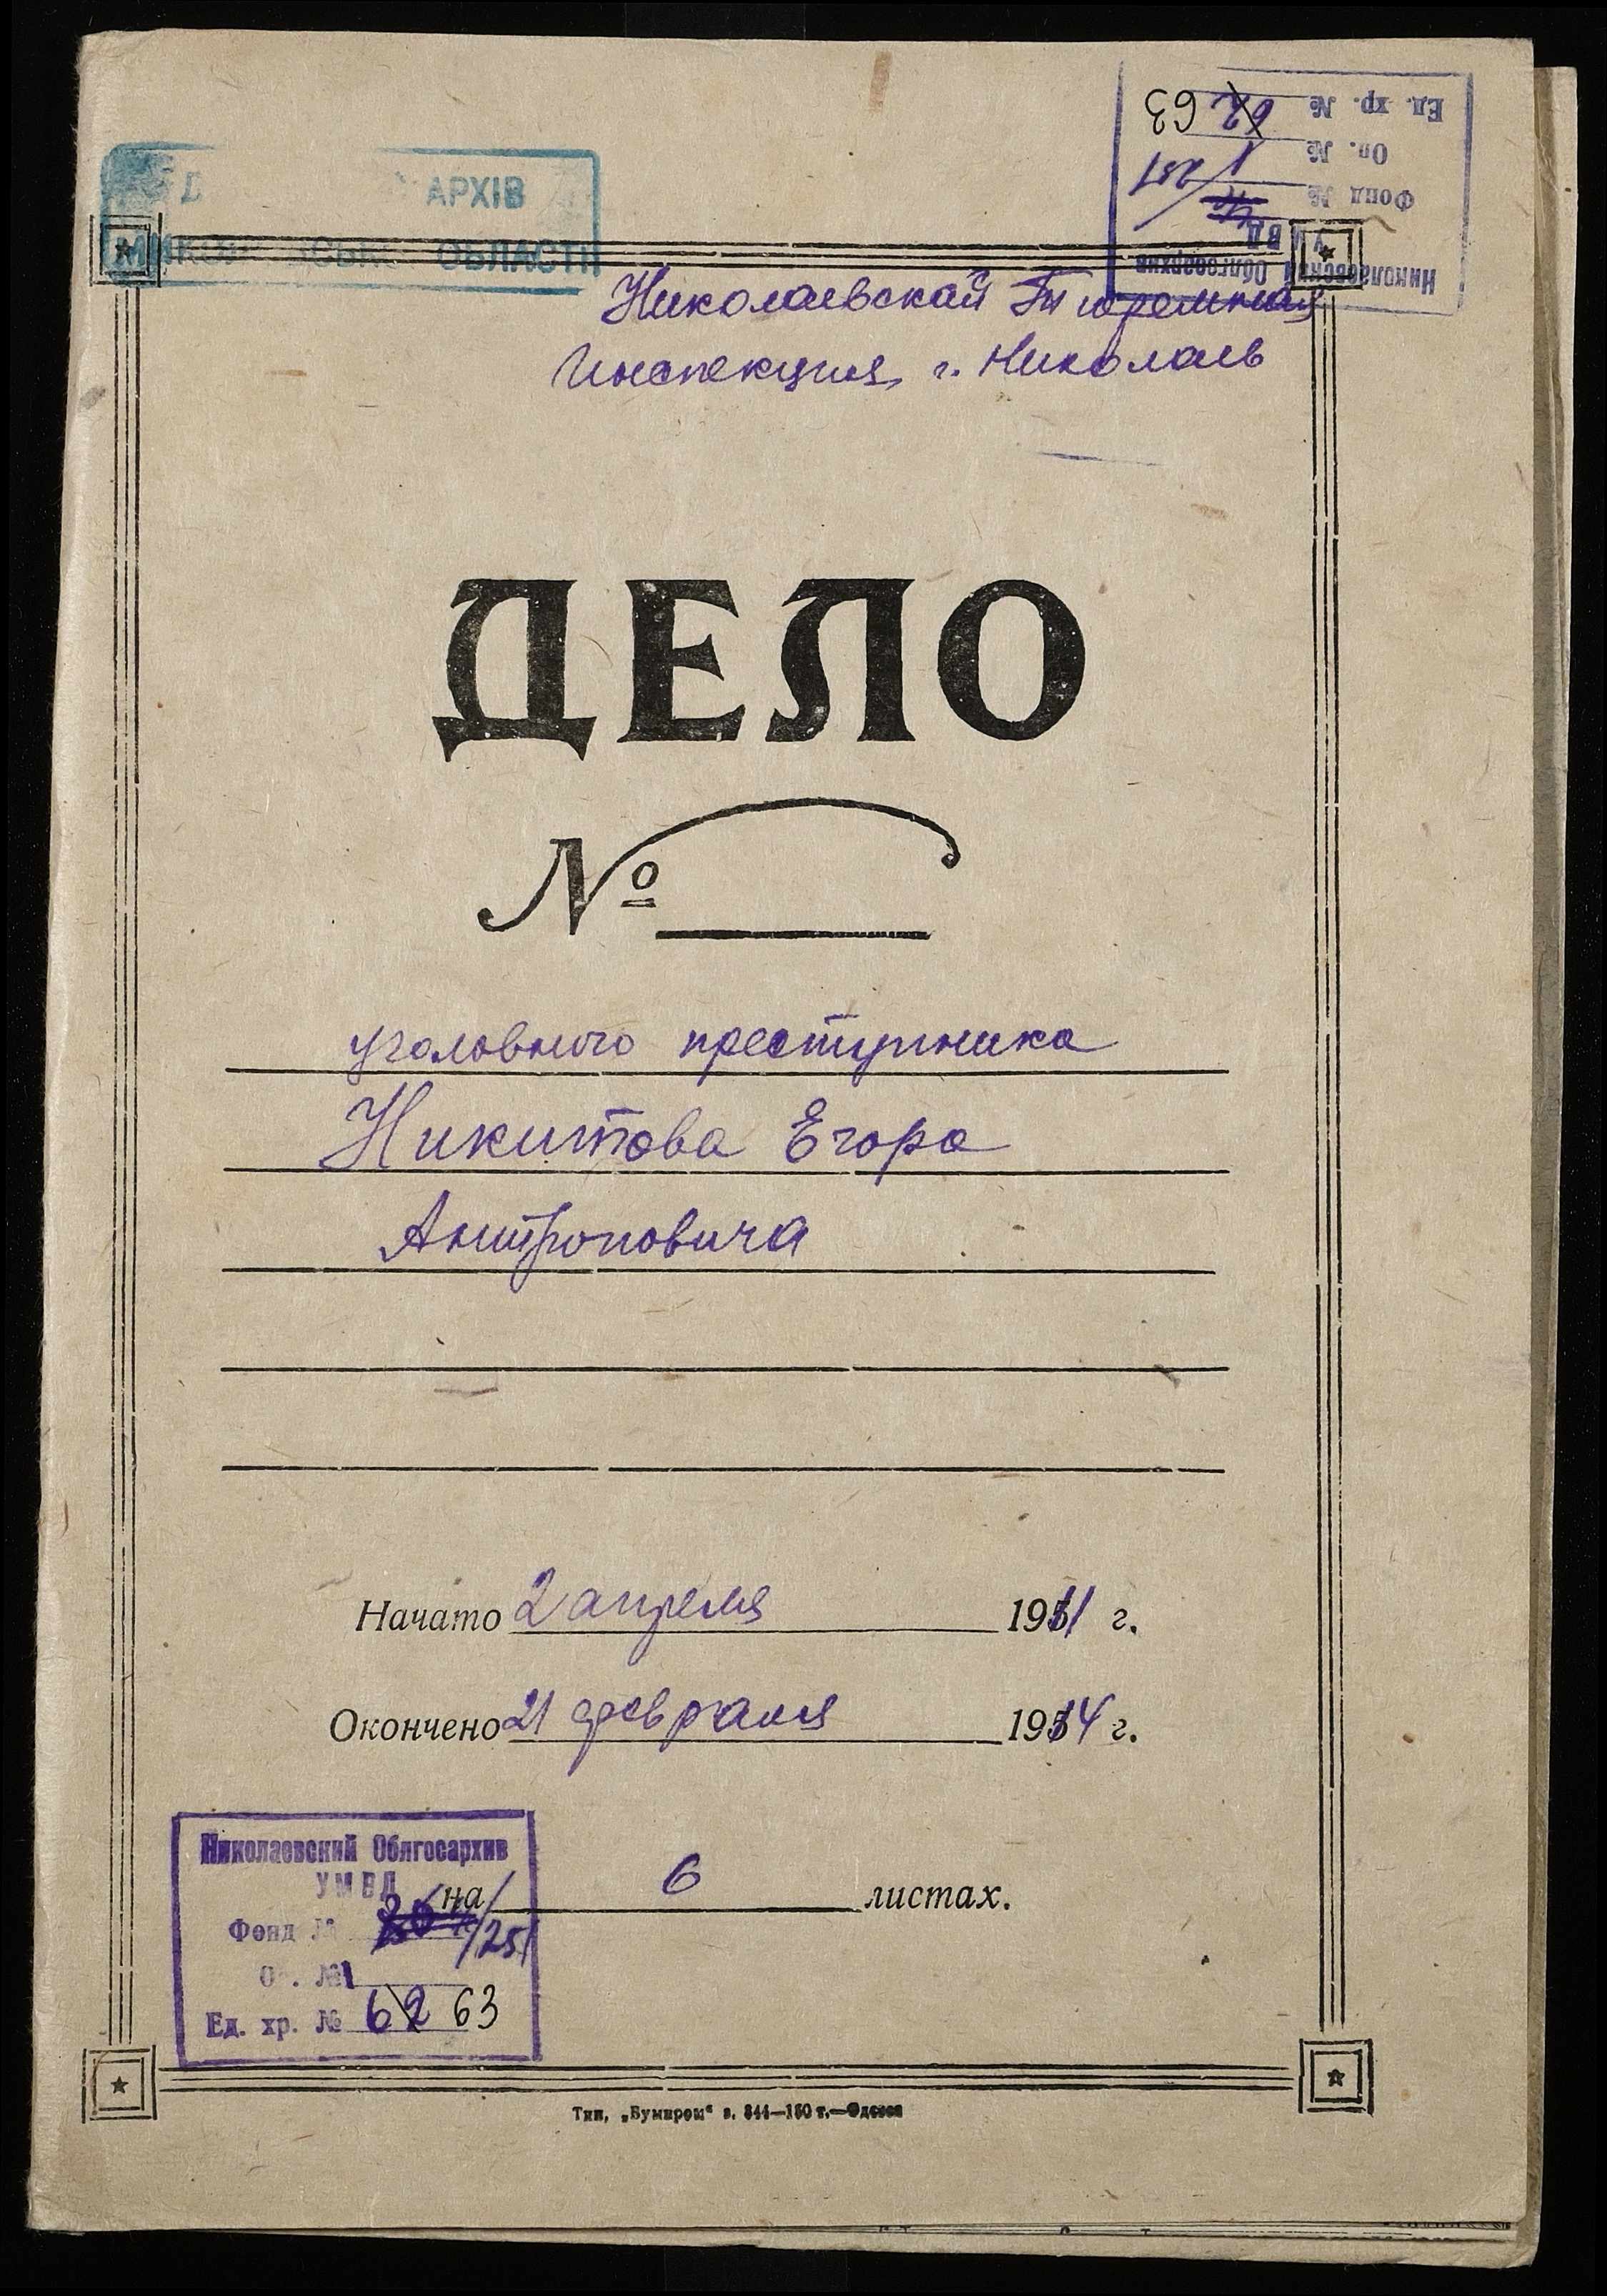 АРХІВ
ОБЛАСТІ
Ед. хр. № 62 63
Оп. № 1
Фонд № 251
УМВД
Николаевский Облгосархив
Николаевскай Тюремная
Инспекция, г. Николаев
ДЕЛО
№
уголовного преступника
Никитова Егора
Антроповича
Начато 2 апреля 1911 г.
Окончено 21 февраля 1914 г.
Николаевский Облгосархив
УМВД
на 6 листах.
Фонд № 251
Оп. № 1
Ед. хр. № 62 63
Тип. „Бумпром“ з. 844—150 т.—Одесса